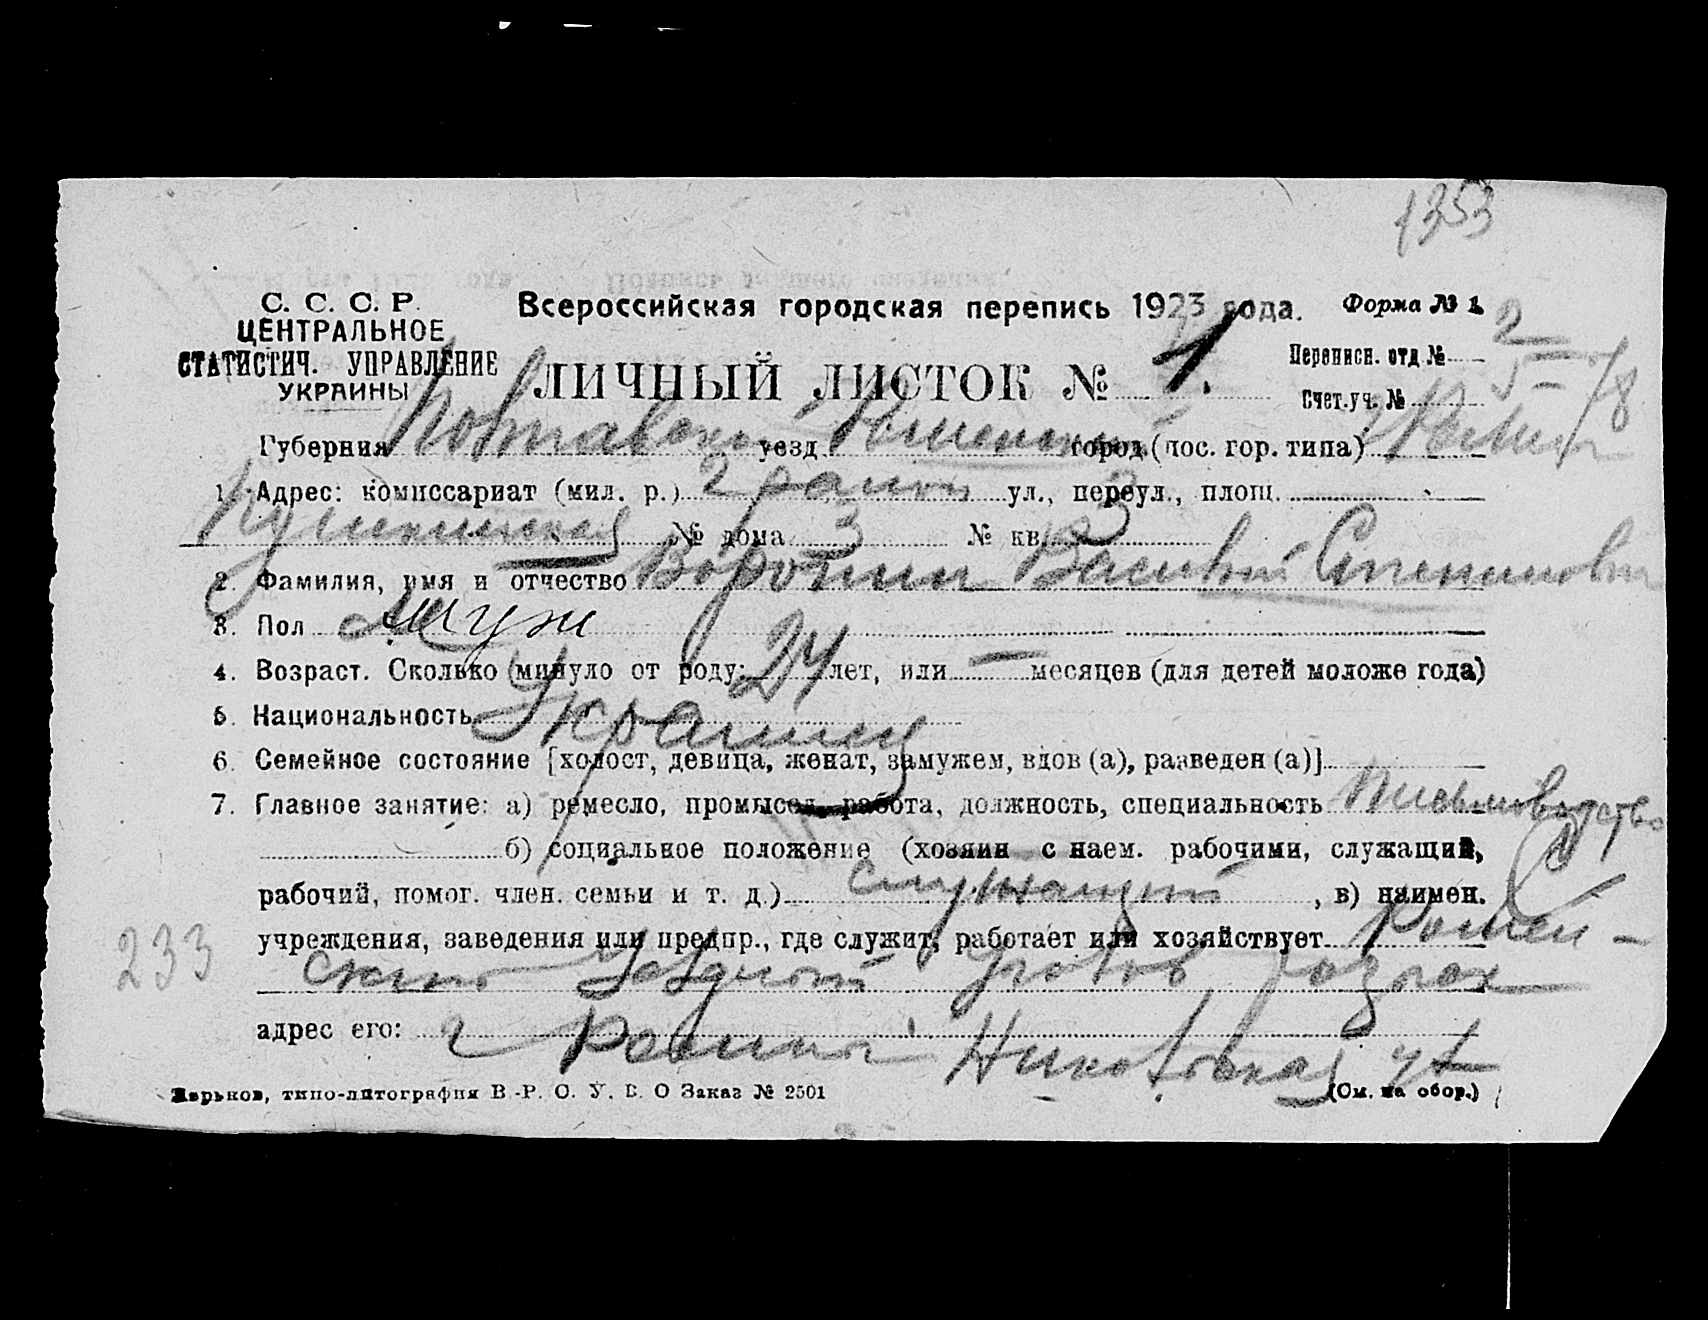 1353
С. С. С. Р.
ЦЕНТРАЛЬНОЕ
СТАТИСТИЧ. УПРАВЛЕНИЕ
УКРАИНЫ
Всероссийская городская перепись 1923 года.
Форма № 1.
ЛИЧНЫЙ ЛИСТОК № 1.
Переписн. отд. № 2
Счет. уч. № 5 /8
Губерния Полтавской уезд Роменский город (пос. гор. типа) г Ромны
1. Адрес: комиссариат (мил. р.) 2 район ул., переул., площ.
Пушкинская № дома 3 № кв. 3
2. Фамилия, имя и отчество Воронин Василий Степанович
3. Пол муж
4. Возраст. Сколько минуло от роду: 24 лет, или — месяцев (для детей моложе года)
5. Национальность Украинец
6. Семейное состояние [холост, девица, женат, замужем, вдов (а), разведен (а)]
7. Главное занятие: а) ремесло, промысел, работа, должность, специальность
б) социальное положение (хозяин с наем. рабочими, служащий,
рабочий, помог. член. семьи и т. д.) служащий , в) наимен.
233
учреждения, заведения или предпр., где служит, работает или хозяйствует Ромен-
ский Уездный Уголов розыск
адрес его: г Ромны ул
Харьков, типо-литография В.-Р. О. У. В. О Заказ № 2501
(См. на обор.)